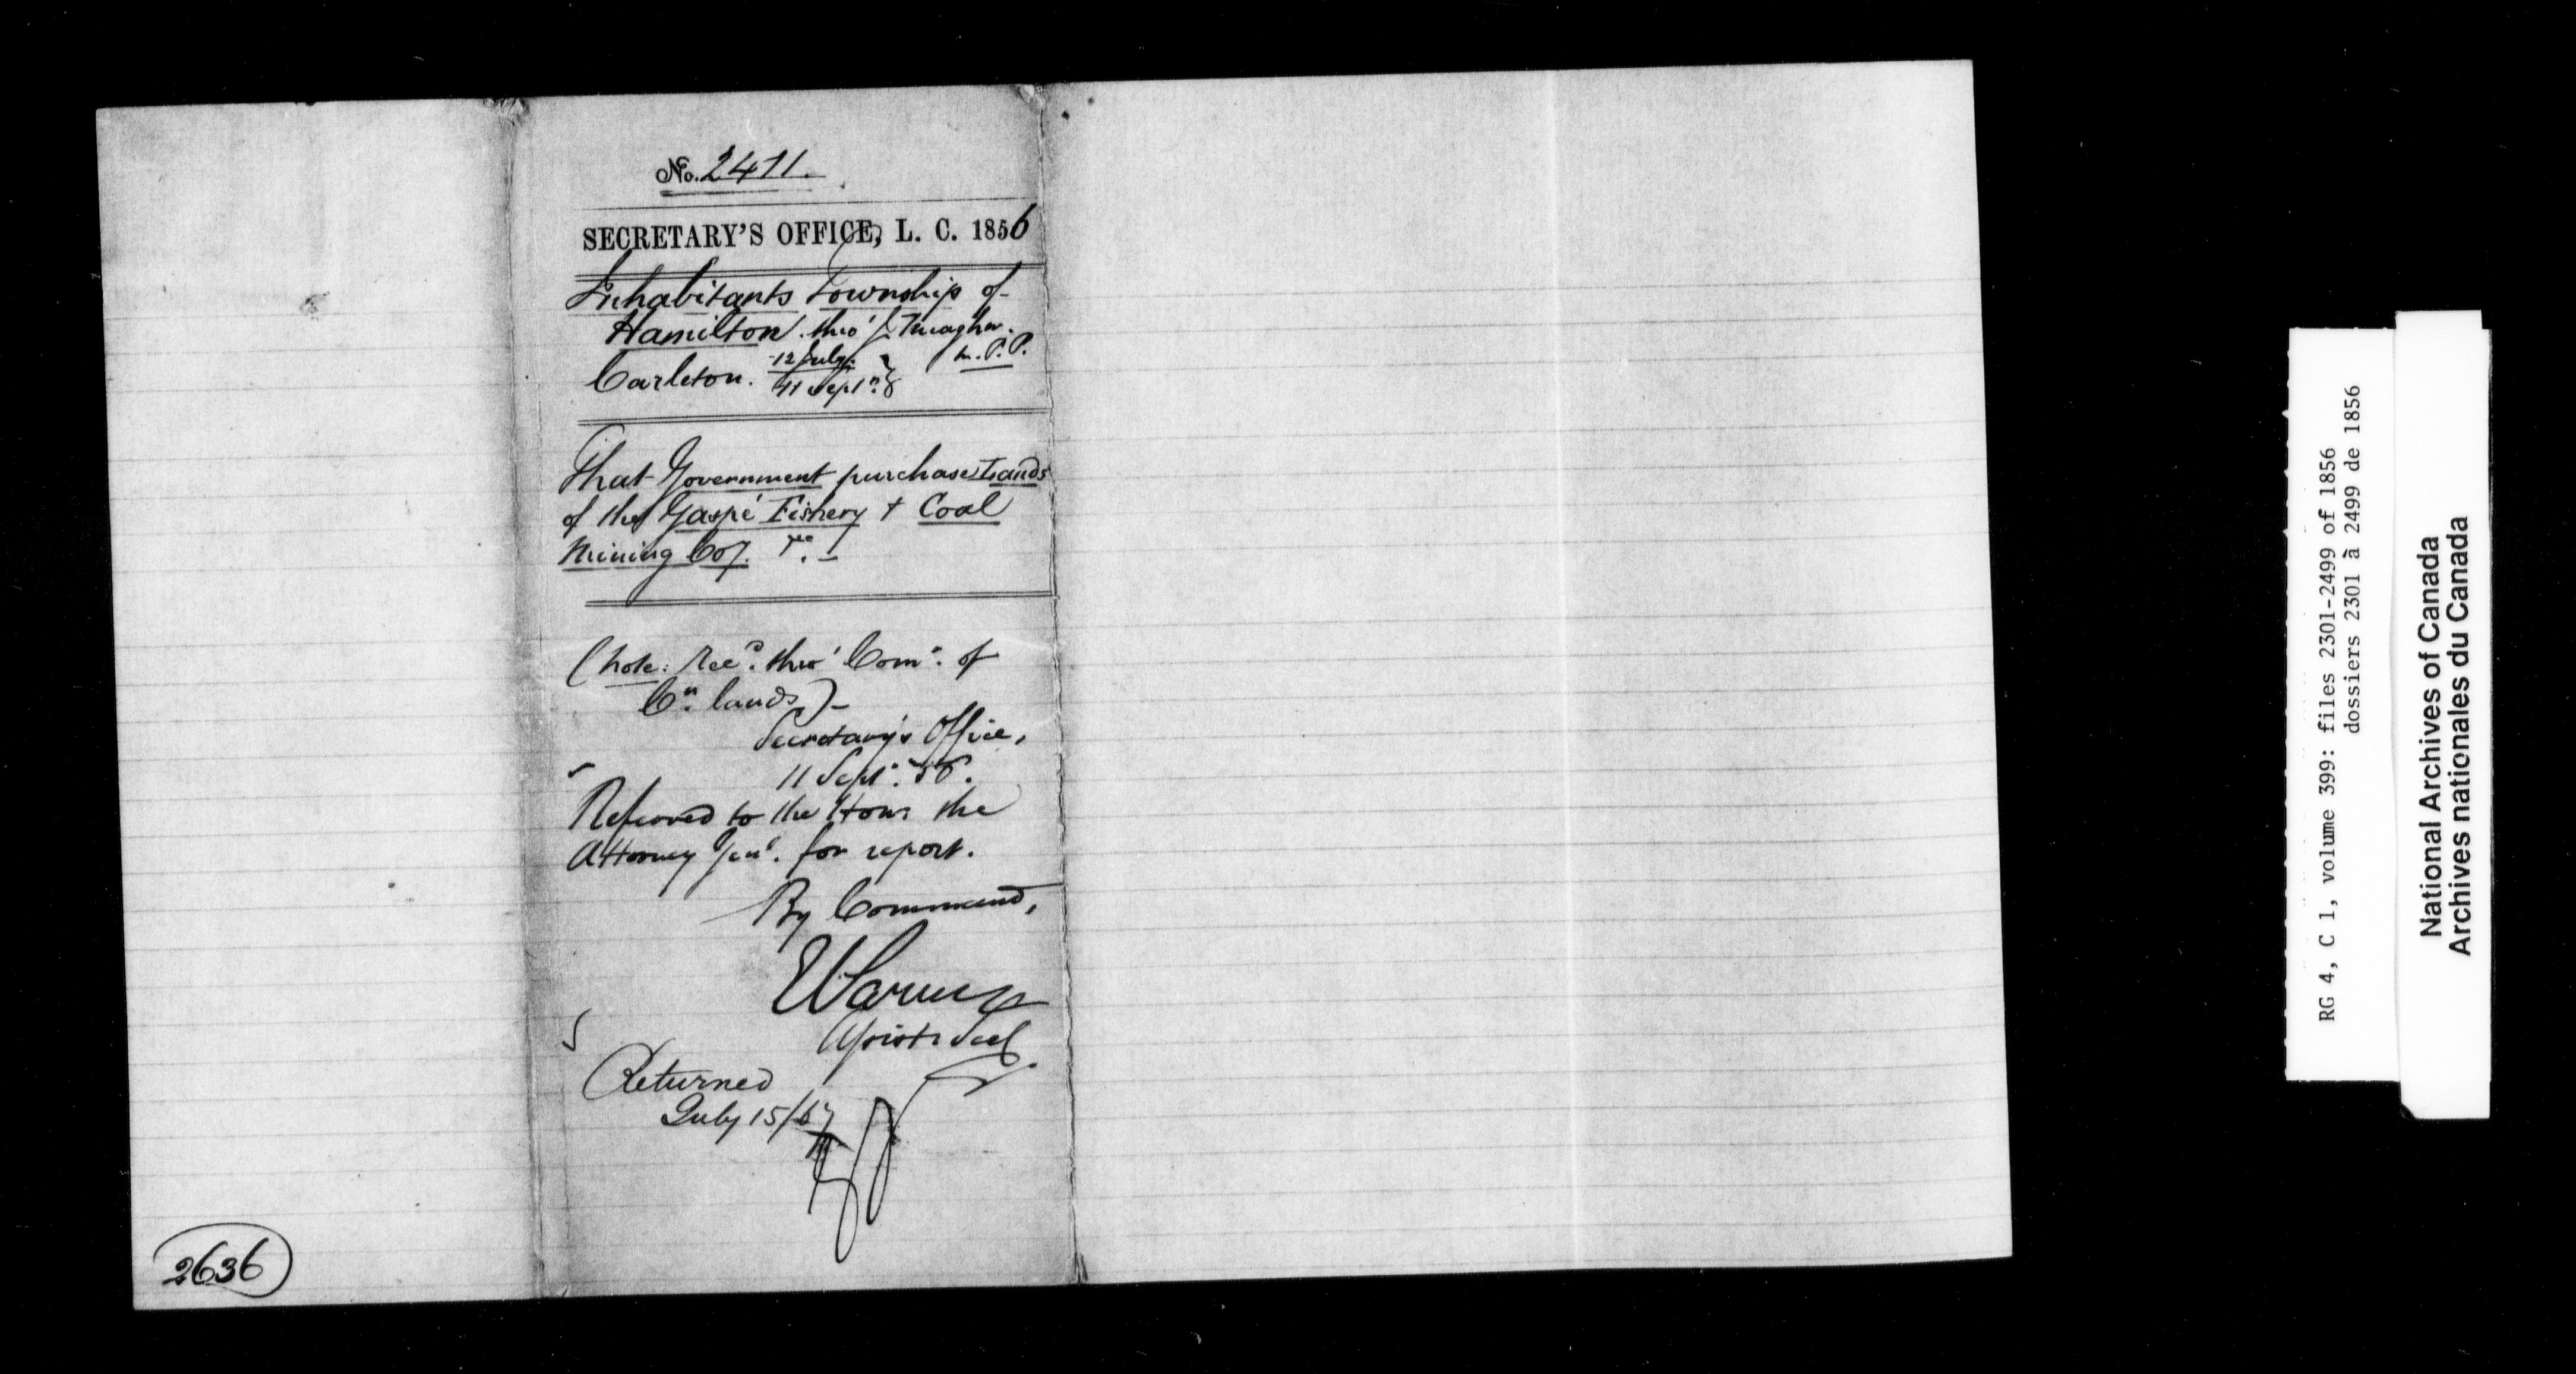 No. 2411.
SECRETARY'S OFFICE, L. C. 1856
Inhabitants Township of
Hamilton. thro' J. Meagher.
M.P.P.
Carleton. 12 July.
11 Sept.
That Government purchase Lands
of the Gaspé Fishery + Coal
Mining Coy.
(Note: Recd. thro' Comr. of
Cn. lands)-
Secretary's Office,
11 Sept. 56.
Referred to the Hon: the
Attorney Genl. for report.
By Command,
Returned
July 15/67
2636
RG 4, C 1, volume 399: files 2301-2499 of 1856
dossiers 2301 à 2499 de 1856
National Archives of Canada
Archives nationales du Canada